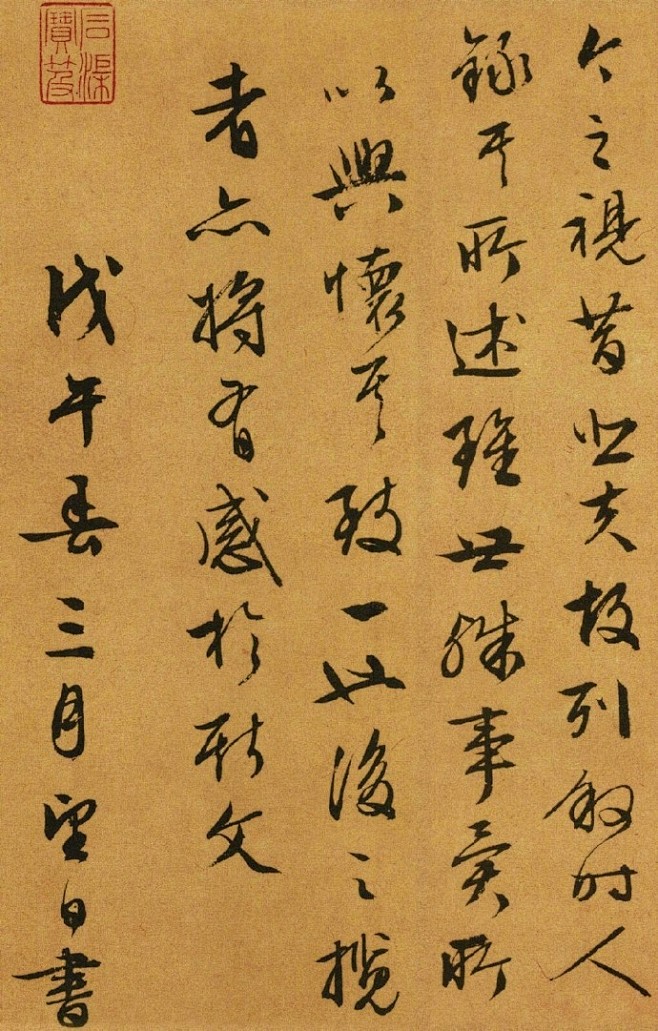 今之視昔悲夫故列敘時人
錄其所述雖世殊事異所
以興懷其致一也後之攬
者亦將有感於斯文
戊午春三月望日書
石渠
寶笈